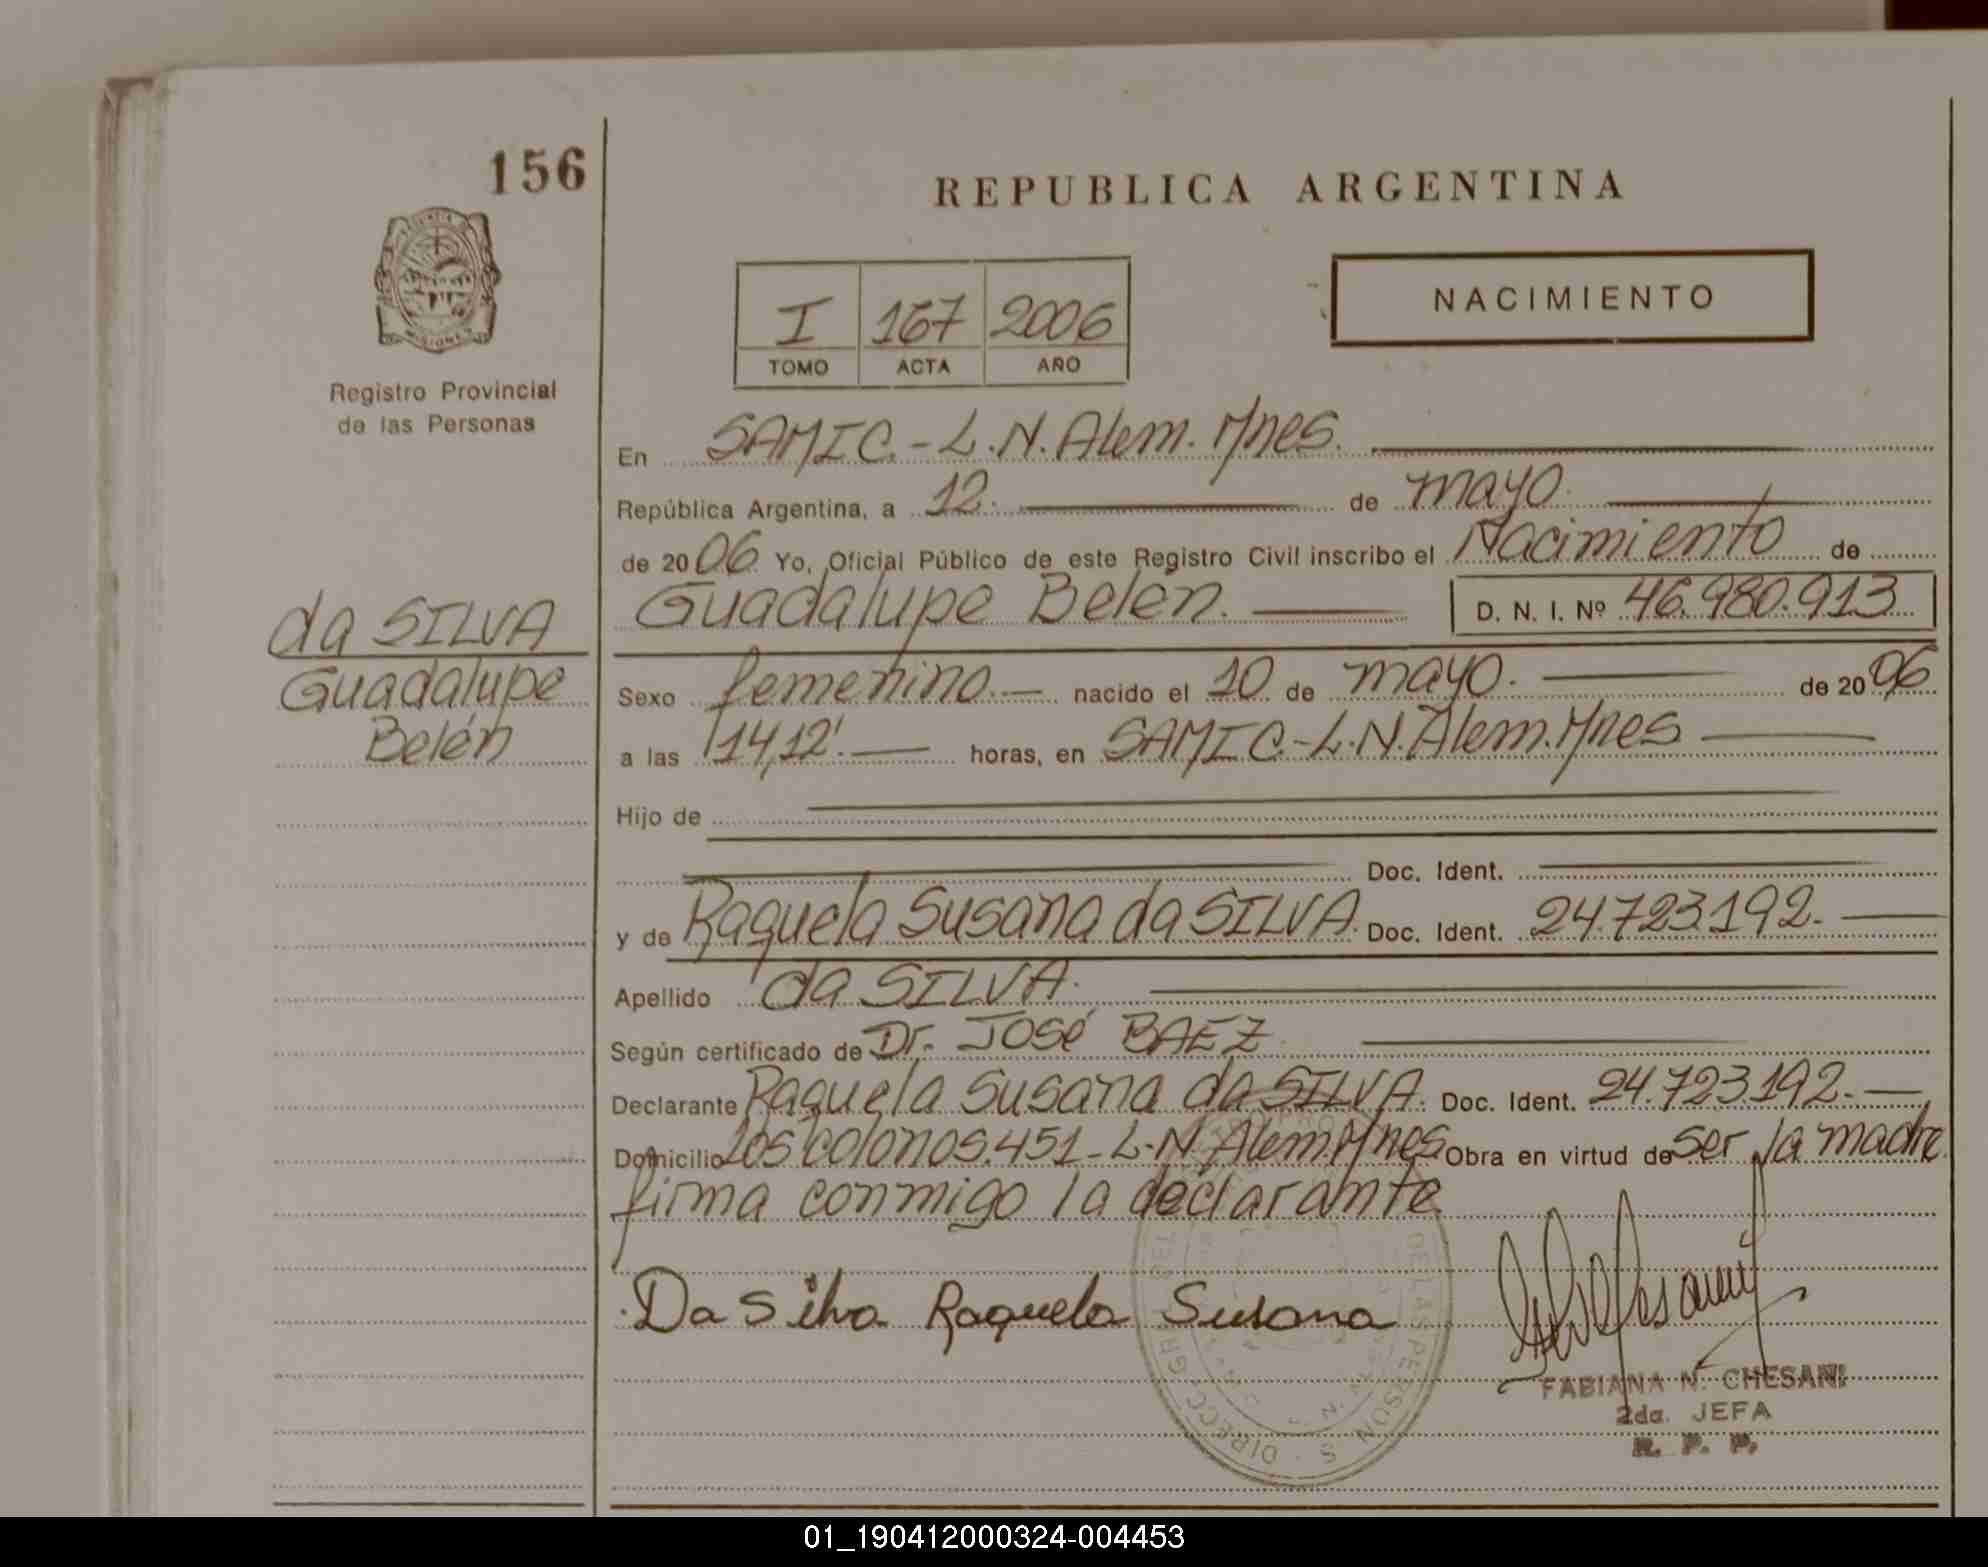 156
REPUBLICA ARGENTINA
NACIMIENTO
I 167 2006
TOMO ACTA AÑO
MISIONES
Registro Provincial
de las Personas
En SAMIC.-L.N.Alem.Mnes.
República Argentina, a 12. de mayo.
de 2006 Yo, Oficial Público de este Registro Civil inscribo el Nacimiento de
Guadalupe Belén. D. N. I. Nº 46.980.913
da SILVA
Guadalupe
Belén
Sexo femenino.- nacido el 10 de mayo. de 2006
a las 14,12'. horas, en SAMIC.-L.N.Alem.Mnes
Hijo de
Doc. Ident.
y de Raquela Susana da SILVA. Doc. Ident. 24.723.192.
Apellido da SILVA.
Según certificado de Dr. JOSé BAEZ
Declarante Raquela Susana da SILVA. Doc. Ident. 24.723.192.-
Domicilio Los colonos.451-L.N.Alem.Mnes Obra en virtud de ser la madre
firma conmigo la declarante
Da Silva Raquela Susana
FABIANA N. CHESANI
2da. JEFA
R. P. P.
DE LAS PERSONAS
01_190412000324-004453